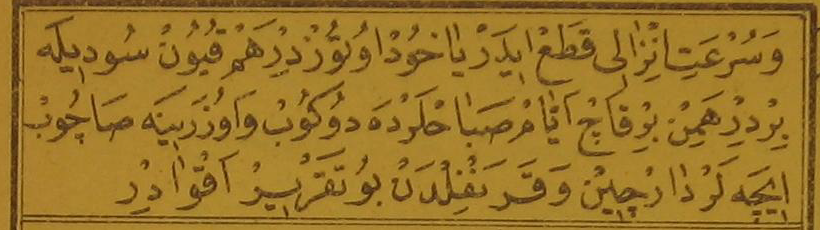 وَسُرْعَتِ اِنْزَالِى قَطْعْ اِيدَرْ يَاخُودْ اوُتُوزْ دِرْهَمْ قُيُونْ سُودِيلَه
بِرْ دِرْهَمِنْ بِرْقَاچْ اَيَّامْ صَبَاحْلَرْدَه دوُكُوبْ وَاوُزَرِينَه صَاچُوبْ
اِيچَه لَرْ دَارْچِينْ وَقَرَنْفِلْدَنْ بوُ تَقْرِيرْ اَقْوَادِرْ